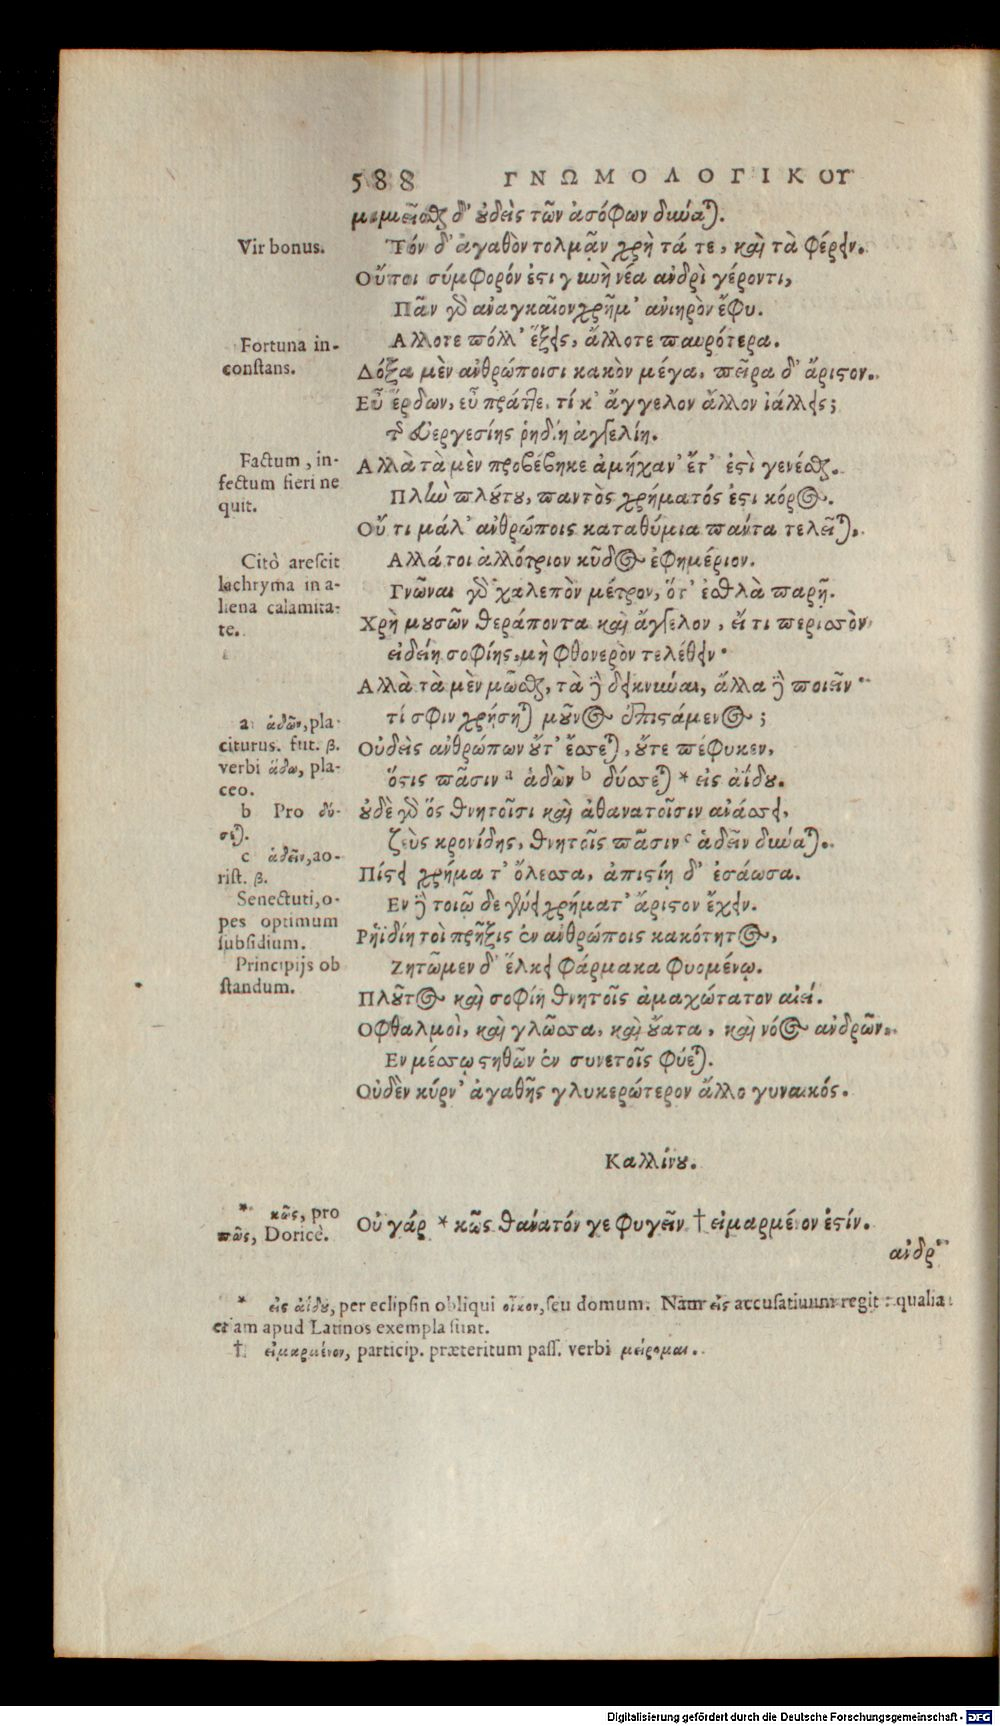 588 ΓΝΩΜΟΛΟΓΙΚΟΥ
μωμεῖσθαι δ' οὐδεὶς τῶν ἀσόφων δύναται.
Vir bonus.
Τόν δ' ἀγαθὸν τολμᾷν χρὴ τά τε, καὶ τὰ φέρειν.
Οὔτοι σύμφορόν ἐστι γυνὴ νέα ἀνδρὶ γέροντι,
Πᾶν γὰρ ἀναγκαῖον χρῆμ' ἀνιηρὸν ἔφυ.
Fortuna in-
constans.
Αλλοτε πόλλ' ἕξεις, ἄλλοτε παυρότερα.
Δόξα μὲν ἀνθρώποισι κακὸν μέγα, πεῖρα δ' ἄριστον.
Εὖ ἔρδων, εὖ πράττε. τί κ' ἄγγελον ἄλλον ἰάλλεις;
τῆς εὐεργεσίης ῥηδίη ἀγγελίη.
Factum, in-
fectum fieri ne
quit.
Αλλὰ τὰ μὲν προβέβηκε ἀμήχαν' ἔτ' ἐστὶ γενέσθαι.
Πλὴν πλούτου, παντὸς χρήματός ἐστι κόρος.
Οὔ τι μάλ' ἀνθρώποις καταθύμια πάντα τελεῖται.
Citò arescit
lachryma in a-
liena calamita-
te.
Αλλά τοι ἀλλότριον κῦδος ἐφημέριον.
Γνῶναι γὰρ χαλεπὸν μέτρον, ὅτ' ἐσθλὰ παρῇ.
Χρὴ μουσῶν θεράποντα καὶ ἄγγελον, εἴ τι περισσὸν
εἰδείη σοφίης, μὴ φθονερὸν τελέθειν·
Αλλὰ τὰ μὲν μῶσθαι, τὰ δὲ δεικνύναι, ἄλλα δὲ ποιεῖν·
τί σφιν χρήσηται μοῦνος ἐπιστάμενος;
a ἁδῶν, pla-
citurus. fut. β.
verbi ἅδω, pla-
ceo.
Οὐδεὶς ἀνθρώπων οὔτ' ἔσσεται, οὔτε πέφυκεν,
ὅστις πᾶσιν a ἁδῶν b δύσεται * εἰς ἀΐδου.
b Pro δύ-
σεται.
οὐδὲ γὰρ ὅς θνητοῖσι καὶ ἀθανατοῖσιν ἀνάσσει,
ζεὺς κρονίδης, θνητοῖς πᾶσιν c ἁδεῖν δύναται.
c ἁδεῖν, ao-
rist. β.
Πίστει χρήματ' ὄλεσσα, ἀπιστίῃ δ' ἐσάωσα.
Senectuti, o-
pes optimum
subsidium.
Εν δὲ τοιῷδε γένει χρήματ' ἄριστον ἔχειν.
Ρηϊδίη τοὶ πρῆξις ἐν ἀνθρώποις κακότητος,
Principijs ob
standum.
Ζητῶμεν δ' ἕλκει φάρμακα φυομένῳ.
Πλοῦτος καὶ σοφίη θνητοῖς ἀμαχώτατον αἰεί.
Οφθαλμοὶ, καὶ γλῶσσα, καὶ οὔατα, καὶ νόος ἀνδρῶν
Εν μέσσῳ στηθῶν ἐν συνετοῖς φύεται.
Οὐδὲν κύρν' ἀγαθῆς γλυκερώτερον ἄλλο γυναικός.
Καλλίνου.
* κῶς, pro
πῶς, Doricè.
Οὐ γάρ * κῶς θάνατόν γε φυγεῖν † εἱμαρμένον ἐστίν.
ἀνδρ
* εἰς ἀΐδου, per eclipsin obliqui οἶκον, seu domum. Nam εἰς accusatiuum regit: qualia
etiam apud Latinos exempla sunt.
† εἱμαρμένον, particip. præteritum pass. verbi μείρομαι.
Digitalisierung gefördert durch die Deutsche Forschungsgemeinschaft - DFG